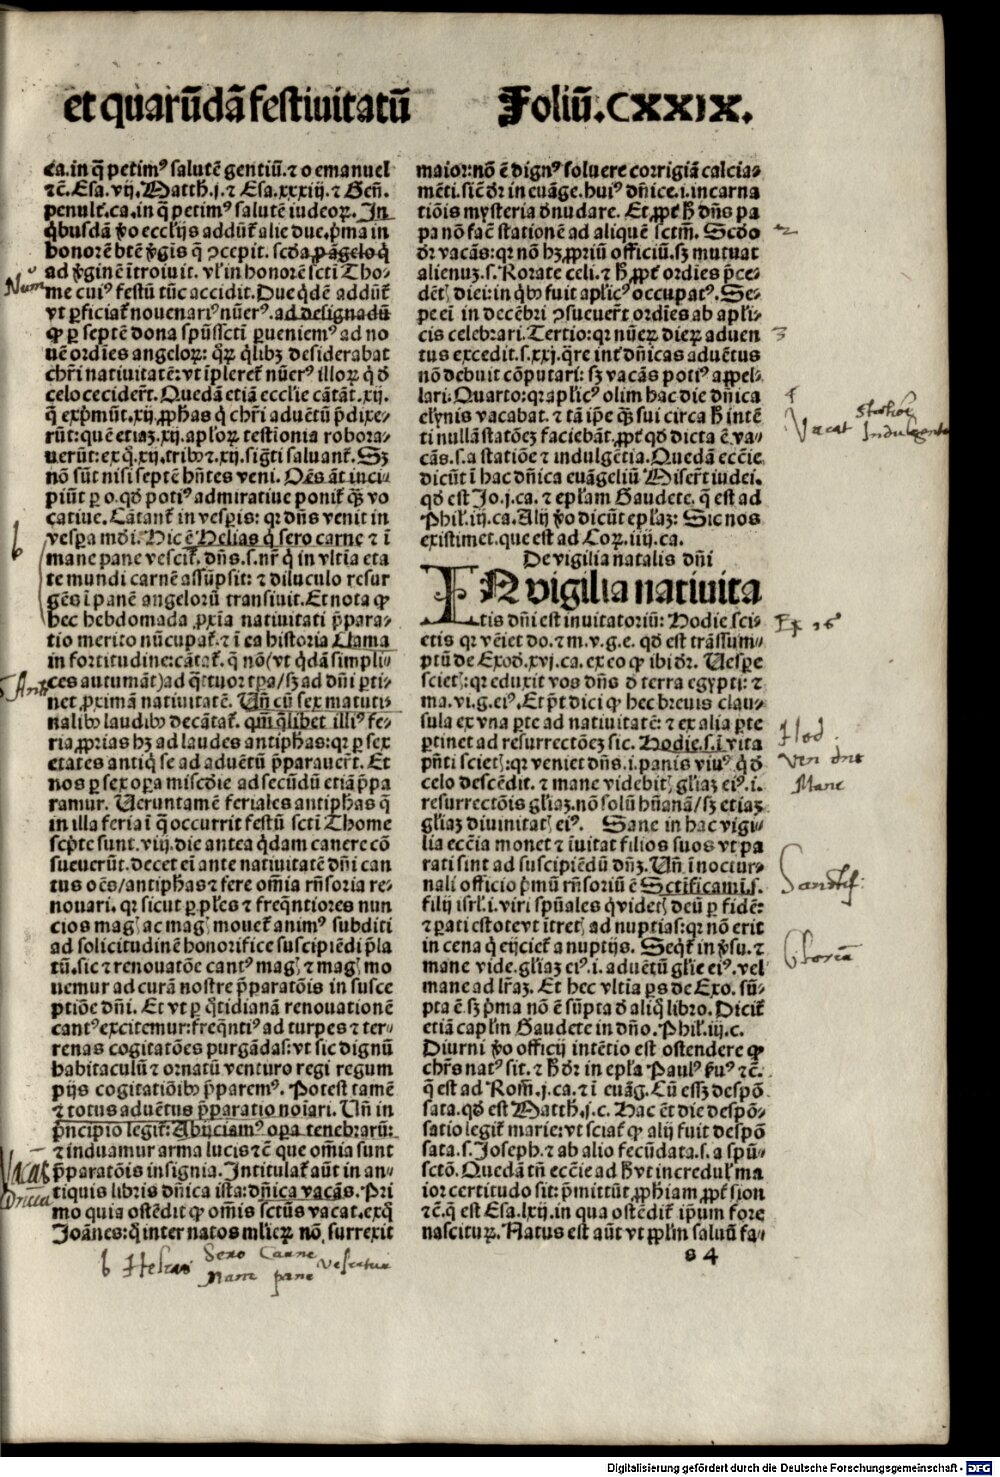 et quarūdā festiuitatū Foliū.CXXIX.
ca.in q̄ petimꝰ salutē gentiū.⁊ o emanuel
⁊cē.Esa.vij.Matth̄.j.⁊ Esa.xxxiij.⁊ Gen̄.
penult̄.ca.in q̄ petimꝰ salutē iudeoꝝ. In
q̇busdā ꝟo ecclijs addūt̄ alie due.p̄ma in
honorē btē ꝟgīs q̄ ꝯcepit. scd̄a ꝓ āgelo q̇
ad ꝟginē ītroiuit. vl̓ in honorē scti Tho-
me cuiꝰ festū tūc accidit. Due q̇dē addūt̄
vt ꝑficiat̄ nouenariꝰ nūerꝰ.ad designādū
ꝙ ꝑ septē dona spūssctī ꝑueniemꝰ ad no
uē ordīes angeloꝝ: q̄ꝝ q̇libꝫ desiderabat
chr̄i natiuitatē:vt īpleret̄ nūerꝰ illoꝝ q̇ d̄
celo cecider̄t. Quedā etiā ecclie cātāt.xij.
q̄ exp̄mūt.xij.ꝓph̄as q̇ chr̄i aduētū p̄dixe-
rūt:quē etiaꝫ.xij.apl̓oꝝ testionia robora-
uerūt:ex q̇.xij.tribꝰ ⁊.xij.sigti saluant̄. Sꝫ
nō sūt nisi septē hn̄tes veni. Oēs āt inci-
piūt ꝑ o.qd̄ potiꝰ admiratiue ponit̄ q̄ꝫ vo
catiue. Cātant̄ in vesꝑis: qr dn̄s venit in
vesꝑa mdī. Hic ē Helias q̇ sero carne ⁊ ī
mane pane vescit̄. dn̄s.s.nr̄ q̇ in vltīa eta
te mundi carnē assūpsit: ⁊ diluculo resur
gēs ī panē angelorū transiuit. Et nota ꝙ
hec hebdomada ꝓxīa natiuitati p̄para-
tio merito nūcupat̄.⁊ ī ea historia Clama
in fortitudine:cātat̄. q̄ nō(vt q̇dā simpli-
ces autumāt)ad q̄ttuor tꝑa/sꝫ ad dn̄i ꝑti-
net ꝓximā natiuitatē. Un̄ cū sex matuti-
nalibꝰ laudibꝰ decātat̄. qm̄ q̄libet illiꝰ fe-
ria ꝓprias hꝫ ad laudes antiphas:qr ꝑ sex
etates antiq̇ se ad aduētū p̄parauer̄t. Et
nos ꝑ sex oꝑa miscd̄ie ad secūdū etiā p̄pa
ramur. Ueruntamē feriales antiphas q̄
in illa feria ī q̄ occurrit festū scti Thome
scpte sunt.viij.die antea q̇dam canere cō
sueuerūt.decet ei ante natiuitatē dn̄i can
tus oēs/antiphas ⁊ fere om̄ia rn̄soria re-
nouari. qr sicut ꝑ ples ⁊ freq̄ntiores nun
cios mag̓ ac mag̓ mouet̄ animꝰ subditi
ad solicitudinē honorifice suscipiēdi p̄la
tū.sic ⁊ renouatōe cantꝰ mag̓ ⁊ mag̓ mo
uemur ad curā nostre p̄paratōis in susce
ptiōe dn̄i. Et vt ꝑ q̇tidianā renouationē
cantꝰ excitemur:freq̄ntiꝰ ad turpes ⁊ ter-
renas cogitatōes purgādas:vt sic dignū
habitaculū ⁊ ornatū venturo regi regum
pijs cogitatiōibꝰ p̄paremꝰ. Potest tamē
⁊ totus aduētus p̄paratio noīari. Un̄ in
p̄ncipio legit̄: Abijciamꝰ oꝑa tenebrarū:
⁊ induamur arma lucis ⁊cē que om̄ia sunt
p̄paratōis insignia. Intitulat̄ aūt in an-
tiquis libris dn̄ica ista:dn̄ica vacās. Pri
mo quia ostēdit ꝙ om̄is sctūs vacat.exq̇
Joānes:q̇ inter natos mlieꝝ nō surrexit
maior:nō ē dignꝰ soluere corrigiā calcia-
mēti.sic d̄r in euāge.huiꝰ dn̄ice.i.incarna
tiōis mysteria dnudare. Et ꝓpt̄ h̄ dn̄s pa
pa nō facē stationē ad aliquē sctm̄. Scd̄o
d̄r vacās:qr nō hꝫ ꝓpriū officiū.sꝫ mutuat
alienuꝫ.s. Rorate celi.⁊ h̄ ꝓpt̄ ordīes p̄ce-
dēt̓ diei:in q̇bꝰ fuit apl̓icꝰ occupatꝰ. Se-
pe ei in decēbri ꝯsueuer̄t ordīes ab apl̓i-
cis celebrari. Tertio:qr nūeꝝ dieꝝ aduen
tus excedit.s.xxj.q̄re int̄ dn̄icas aduētus
nō debuit cōputari: sꝫ vacās potiꝰ appel-
lari. Quarto:qr apl̓icꝰ olim hac die dn̄ica
elynis vacabat.⁊ tā ipē q̄ꝫ sui circa h̄ intē
ti nullā statōeꝫ faciebāt.ꝓpt̄ qd̄ dicta ē.va-
cās.s.a statiōe ⁊ indulgētia. Quedā ecc̄ie
dicūt ī hac dn̄ica euāgeliū Miserūt iudei.
qd̄ est Jo.j.ca.⁊ ep̄lam Gaudete. q̄ est ad
Phil̓.iiij.ca. Alij ꝟo dicūt ep̄laꝫ: Sic nos
existimet.que est ad Coꝝ.iiij.ca.
De vigilia natalis dn̄i
IN vigilia natiuita
tis dn̄i est inuitatoriū: Hodie sci-
etis qr vēiet do.⁊ m.v.g.e. qd̄ est trāssum-
ptū de Exod̄.xvj.ca.ex eo ꝙ ibi d̄r. Uesꝑe
sciet̓:qr eduxit vos dn̄s d̄ terra egypti: ⁊
ma.vi.g.eiꝰ. Et p̄t dici ꝙ hec breuis clau-
sula ex vna ꝑte ad natiuitatē: ⁊ ex alia ꝑte
ꝑtinet ad resurrectōeꝫ sic. Hodie.s.ī vita
pn̄ti sciet̓:qr veniet dn̄s.i.panis viuꝰ q̇ d̄
celo descēdit.⁊ mane videbit̓ gl̓iaꝫ eiꝰ.i.
resurrectōis gl̓iaꝫ.nō solū hūanā/sꝫ etiaꝫ
gl̓iaꝫ diuinitat̓ eiꝰ. Sane in hac vigi-
lia ecc̄ia monet ⁊ īuitat filios suos vt pa
rati sint ad suscipiēdū dn̄ꝫ. Un̄ ī noctur-
nali officio p̄mū rn̄soriū ē Sctificamī.s.
filij isrl̓.i.viri spūales q̇ videt̓ deū ꝑ fidē:
⁊ ꝑati estote vt ītret̓ ad nuptias:qr nō erit
in cena q̇ eijciet̄ a nuptijs. Seq̄t̄ in ꝟsu.⁊
mane vide.gl̓iaꝫ eiꝰ.i.aduētū gl̓ie eiꝰ.vel
mane ad lr̄aꝫ. Et hec vltīa ꝑs de Exo. sū-
pta ē.sꝫ p̄ma nō ē sūpta d̄ aliq̇ libro. Dicit̄
etiā capl̓m Gaudete in dn̄o. Phil̓.iiij.c.
Diurni ꝟo officij intētio est ostendere ꝙ
chr̄s natꝰ sit.⁊ h̄ d̄r in ep̄la Paulꝰ ẜuꝰ ⁊cē.
q̄ est ad Rom̄.j.ca.⁊ ī euāg. Cū essꝫ despō
sata.qd̄ est Matth̄.j.c. Hac ēt die despō-
satio legit̄ marie:vt sciat̄ ꝙ alij fuit despō
sata.s. Joseph.⁊ ab alio fecūdata.s.a spū-
sctō. Quedā tn̄ ecc̄ie ad h̄ vt incredul̓ ma
ior certitudo sit: p̄mittūt ꝓph̄iam ꝓpt̄ sion
⁊cē.q̄ est Esa.lxij.in qua ostēdit̄ ip̄um fore
nasciturꝝ. Natus est aūt vt ppl̓m saluū fa-
s 4
Num
b
Antī
Vacās
Dn̄ica
b Helias Sero Carne
Mane pane vescitur
2
3
4
Vacat statiōe
Indulgentia
Ex 16
Hod.
Ven dn̄s
Mane
Sanctif:
Gloriā
Digitalisierung gefördert durch die Deutsche Forschungsgemeinschaft - DFG